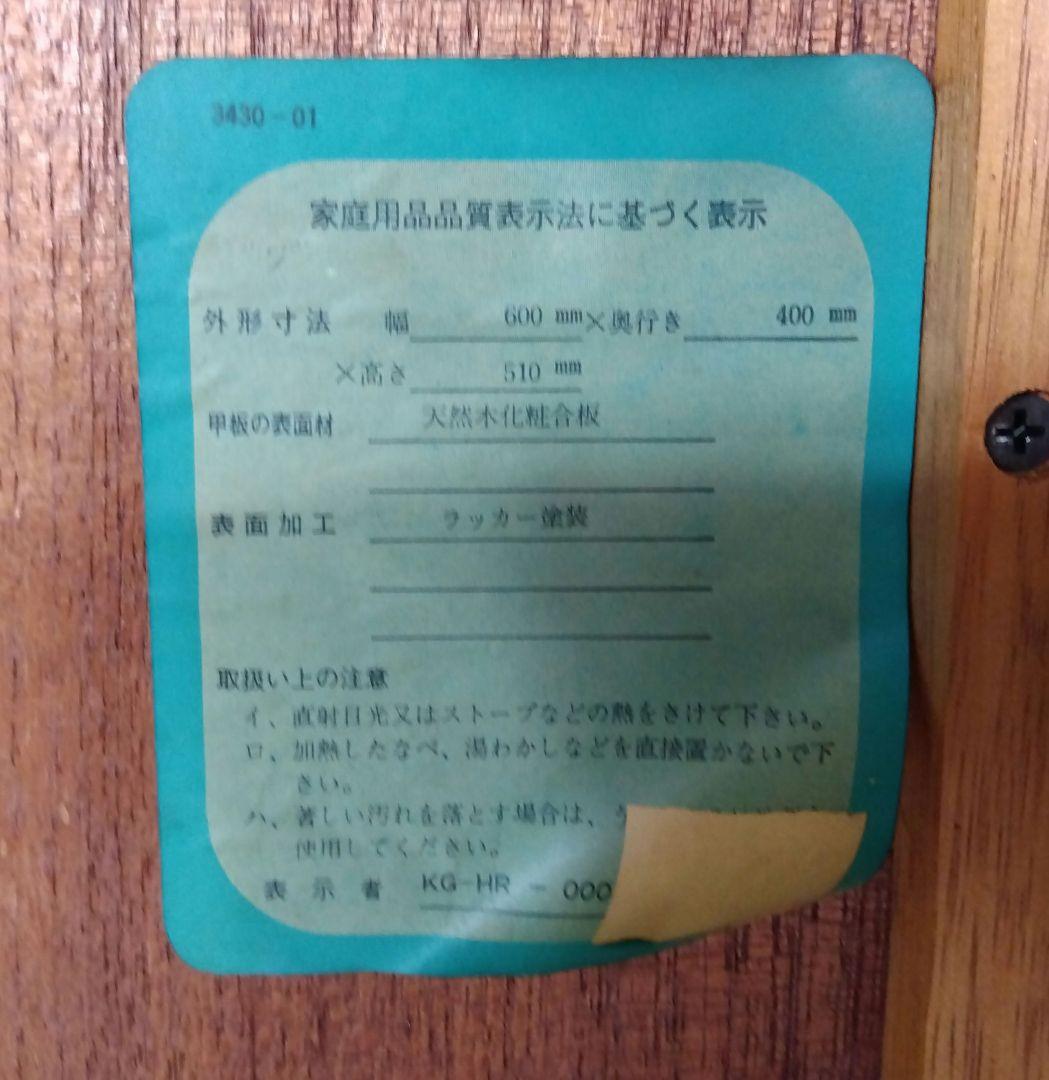 3430-01
家庭用品品質表示法に基づく表示
外形寸法 幅 600 mm×奥行き 400 mm
×高さ 510 mm
甲板の表面材 天然木化粧合板
表面加工 ラッカー塗装
取扱い上の注意
イ、直射日光又はストーブなどの熱をさけて下さい。
ロ、加熱したなべ、湯わかしなどを直接置かないで下
さい。
ハ、著しい汚れを落とす場合は、う
使用してください。
表示者 KG-HR-000